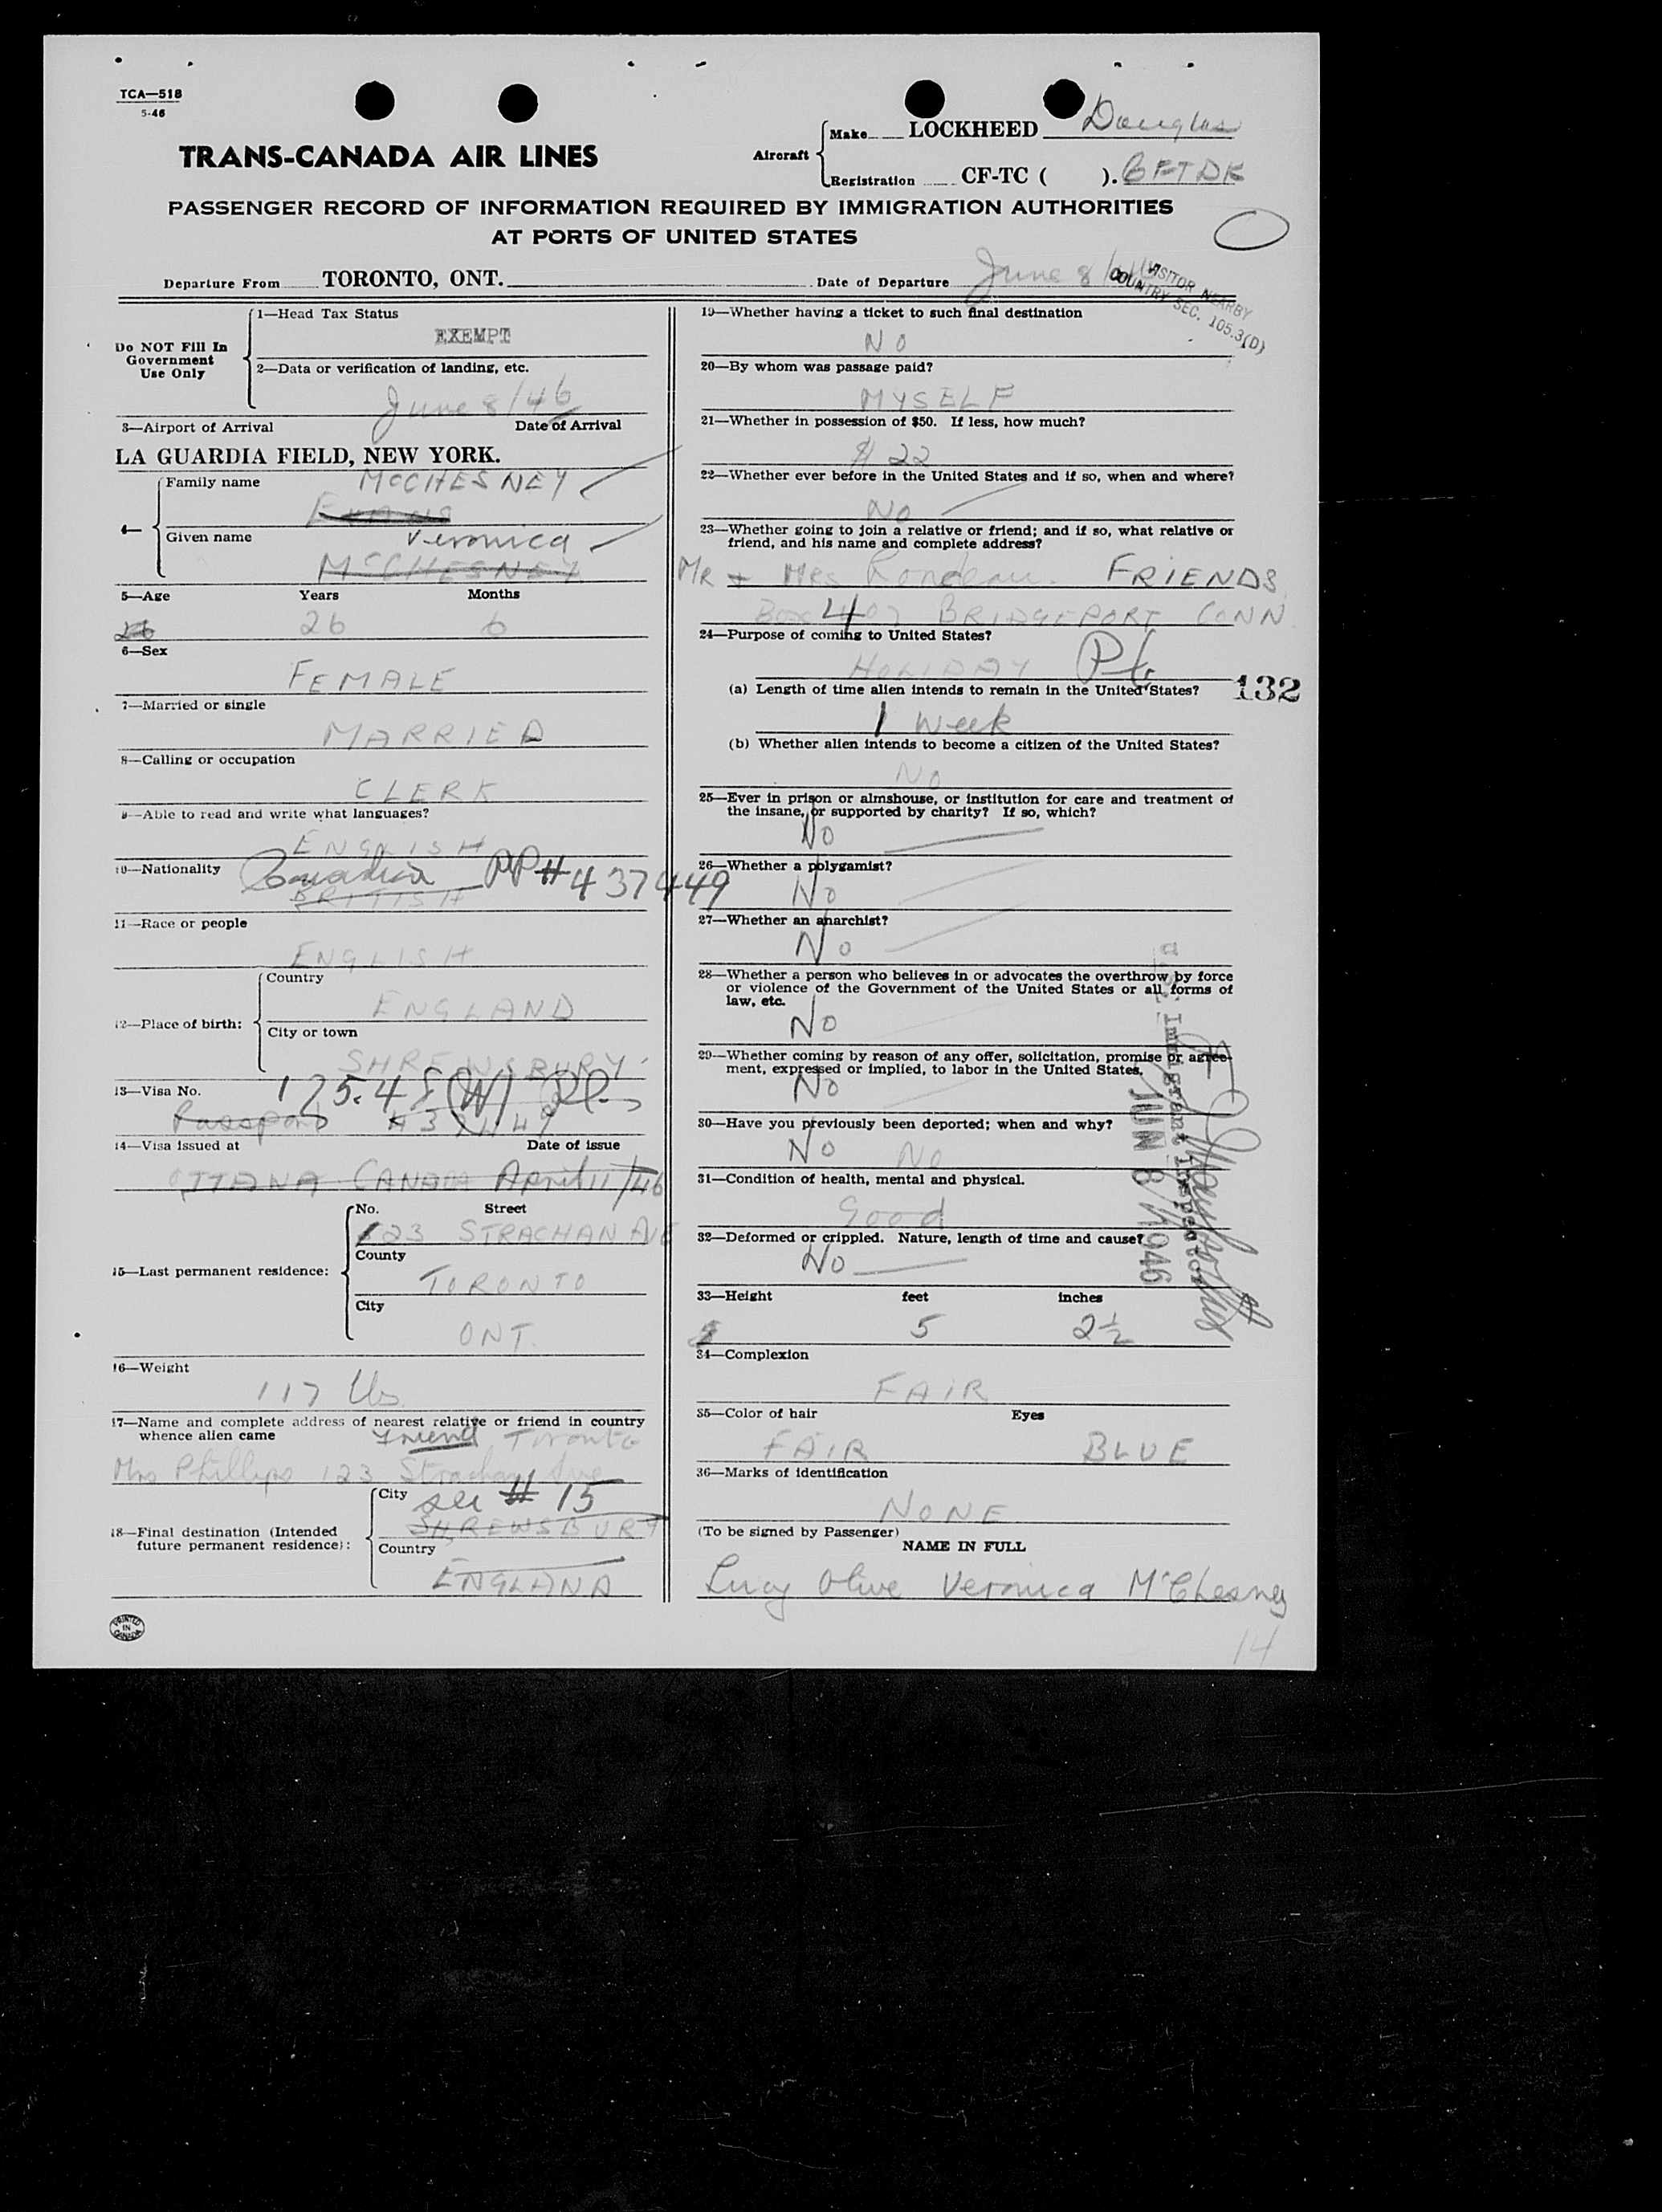 TCA—518
5-46
TRANS-CANADA AIR LINES
Aircraft
Make LOCKHEED Douglas
Registration CF-TC ( ). CFTDK
PASSENGER RECORD OF INFORMATION REQUIRED BY IMMIGRATION AUTHORITIES
AT PORTS OF UNITED STATES
Departure From TORONTO, ONT. Date of Departure June 8/46
VISITOR NEARBY
COUNTRY SEC. 105.3(D)
Do NOT Fill In
Government
Use Only
1—Head Tax Status
EXEMPT
2—Data or verification of landing, etc.
June 8/46
3—Airport of Arrival Date of Arrival
LA GUARDIA FIELD, NEW YORK.
4—
Family name MCCHESNEY
EVANS
Given name Veronica
MCCHESNEY
5—Age Years Months
26 26 6
6—Sex
FEMALE
7—Married or single
MARRIED
8—Calling or occupation
CLERK
9—Able to read and write what languages?
ENGLISH
10—Nationality Canadian PP#437449
BRITISH
11—Race or people
ENGLISH
12—Place of birth:
Country
ENGLAND
City or town
SHREWSBURY
13—Visa No. 175.45(W)
Passport
14—Visa issued at Date of issue
OTTAWA CANADA April 11/46
15—Last permanent residence:
No. Street
123 STRACHAN AVE
County
TORONTO
City
ONT.
16—Weight
117 lbs
17—Name and complete address of nearest relative or friend in country
whence alien came
friend Toronto
Mrs Phillips 123 Strachan Ave
18—Final destination (Intended
future permanent residence):
City see # 15
SHREWSBURY
Country
ENGLAND
PRINTED
IN
CANADA
19—Whether having a ticket to such final destination
NO
20—By whom was passage paid?
MYSELF
21—Whether in possession of $50. If less, how much?
$ 22
22—Whether ever before in the United States and if so, when and where?
No
23—Whether going to join a relative or friend; and if so, what relative or
friend, and his name and complete address?
MR + Mrs Rondeau. FRIENDS
Box 407 BRIDGEPORT CONN.
24—Purpose of coming to United States?
HOLIDAY
(a) Length of time alien intends to remain in the United States?
132
1 week
(b) Whether alien intends to become a citizen of the United States?
NO
25—Ever in prison or almshouse, or institution for care and treatment of
the insane, or supported by charity? If so, which?
No
26—Whether a polygamist?
No
27—Whether an anarchist?
No
28—Whether a person who believes in or advocates the overthrow by force
or violence of the Government of the United States or all forms of
law, etc.
No
29—Whether coming by reason of any offer, solicitation, promise or agree-
ment, expressed or implied, to labor in the United States.
No
30—Have you previously been deported; when and why?
No No
31—Condition of health, mental and physical.
Good
32—Deformed or crippled. Nature, length of time and cause?
No
JUN 8 1946
Immigrant Inspector
33—Height feet inches
5 2½
34—Complexion
FAIR
35—Color of hair Eyes
FAIR BLUE
36—Marks of identification
NONE
(To be signed by Passenger)
NAME IN FULL
Lucy Olive Veronica McChesney
14